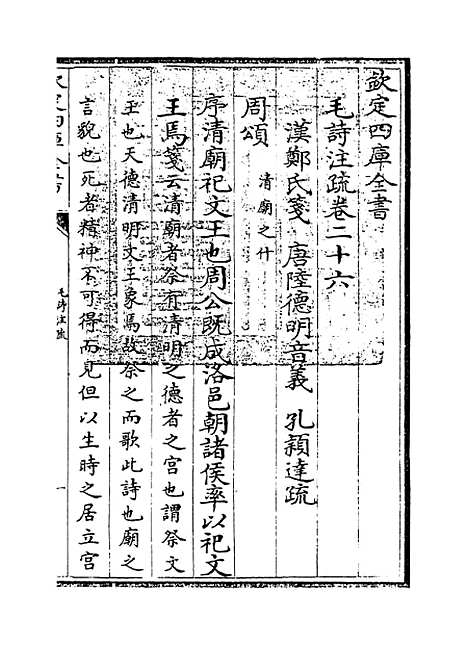 欽定四庫全書
毛詩注疏卷二十六
漢鄭氏箋 唐陸德明音義 孔穎達疏
周頌 清廟之什
序清廟祀文王也周公既成洛邑朝諸侯率以祀文
王焉箋云清廟者祭有清明之德者之宮也謂祭文
王也天德清明文王象焉故祭之而歌此詩也廟之
言貌也死者精神不可得而見但以生時之居立宮
欽定四庫全書
毛詩注疏
一